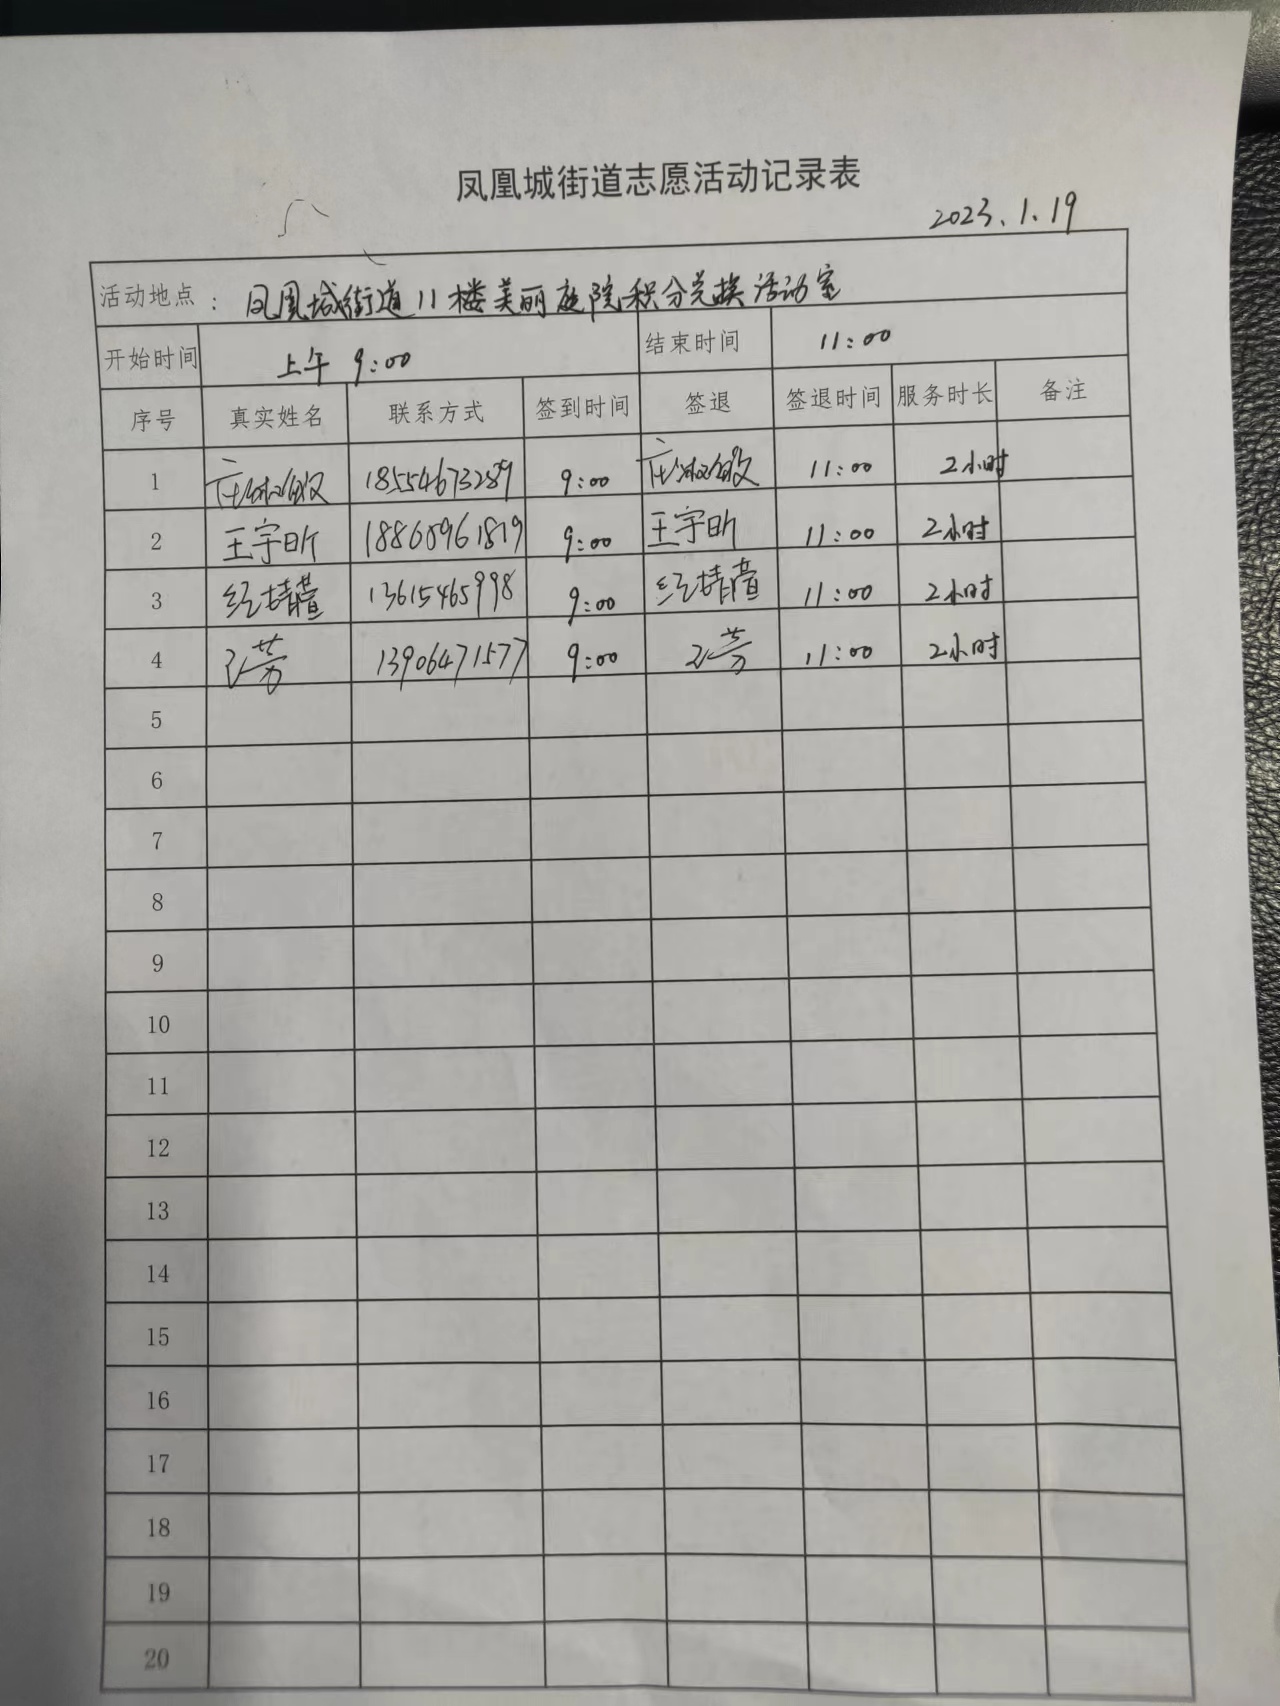 凤凰城街道志愿活动记录表
2023.1.19
活动地点：凤凰城街道11楼美丽庭院积分兑换活动室
开始时间 上午 9:00 结束时间 11:00
序号 真实姓名 联系方式 签到时间 签退 签退时间 服务时长 备注
1 18554673289 9:00 11:00 2小时
2 王宇昕 18860961819 9:00 王宇昕 11:00 2小时
3 13615465998 9:00 11:00 2小时
4 13906471577 9:00 11:00 2小时
5
6
7
8
9
10
11
12
13
14
15
16
17
18
19
20